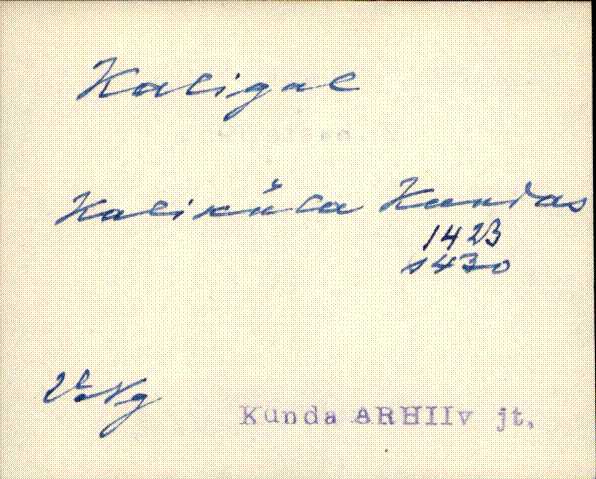 Kaligal
Kaliküla Kundas
1423
1430
V.Ng
Kunda ARHIIv jt,